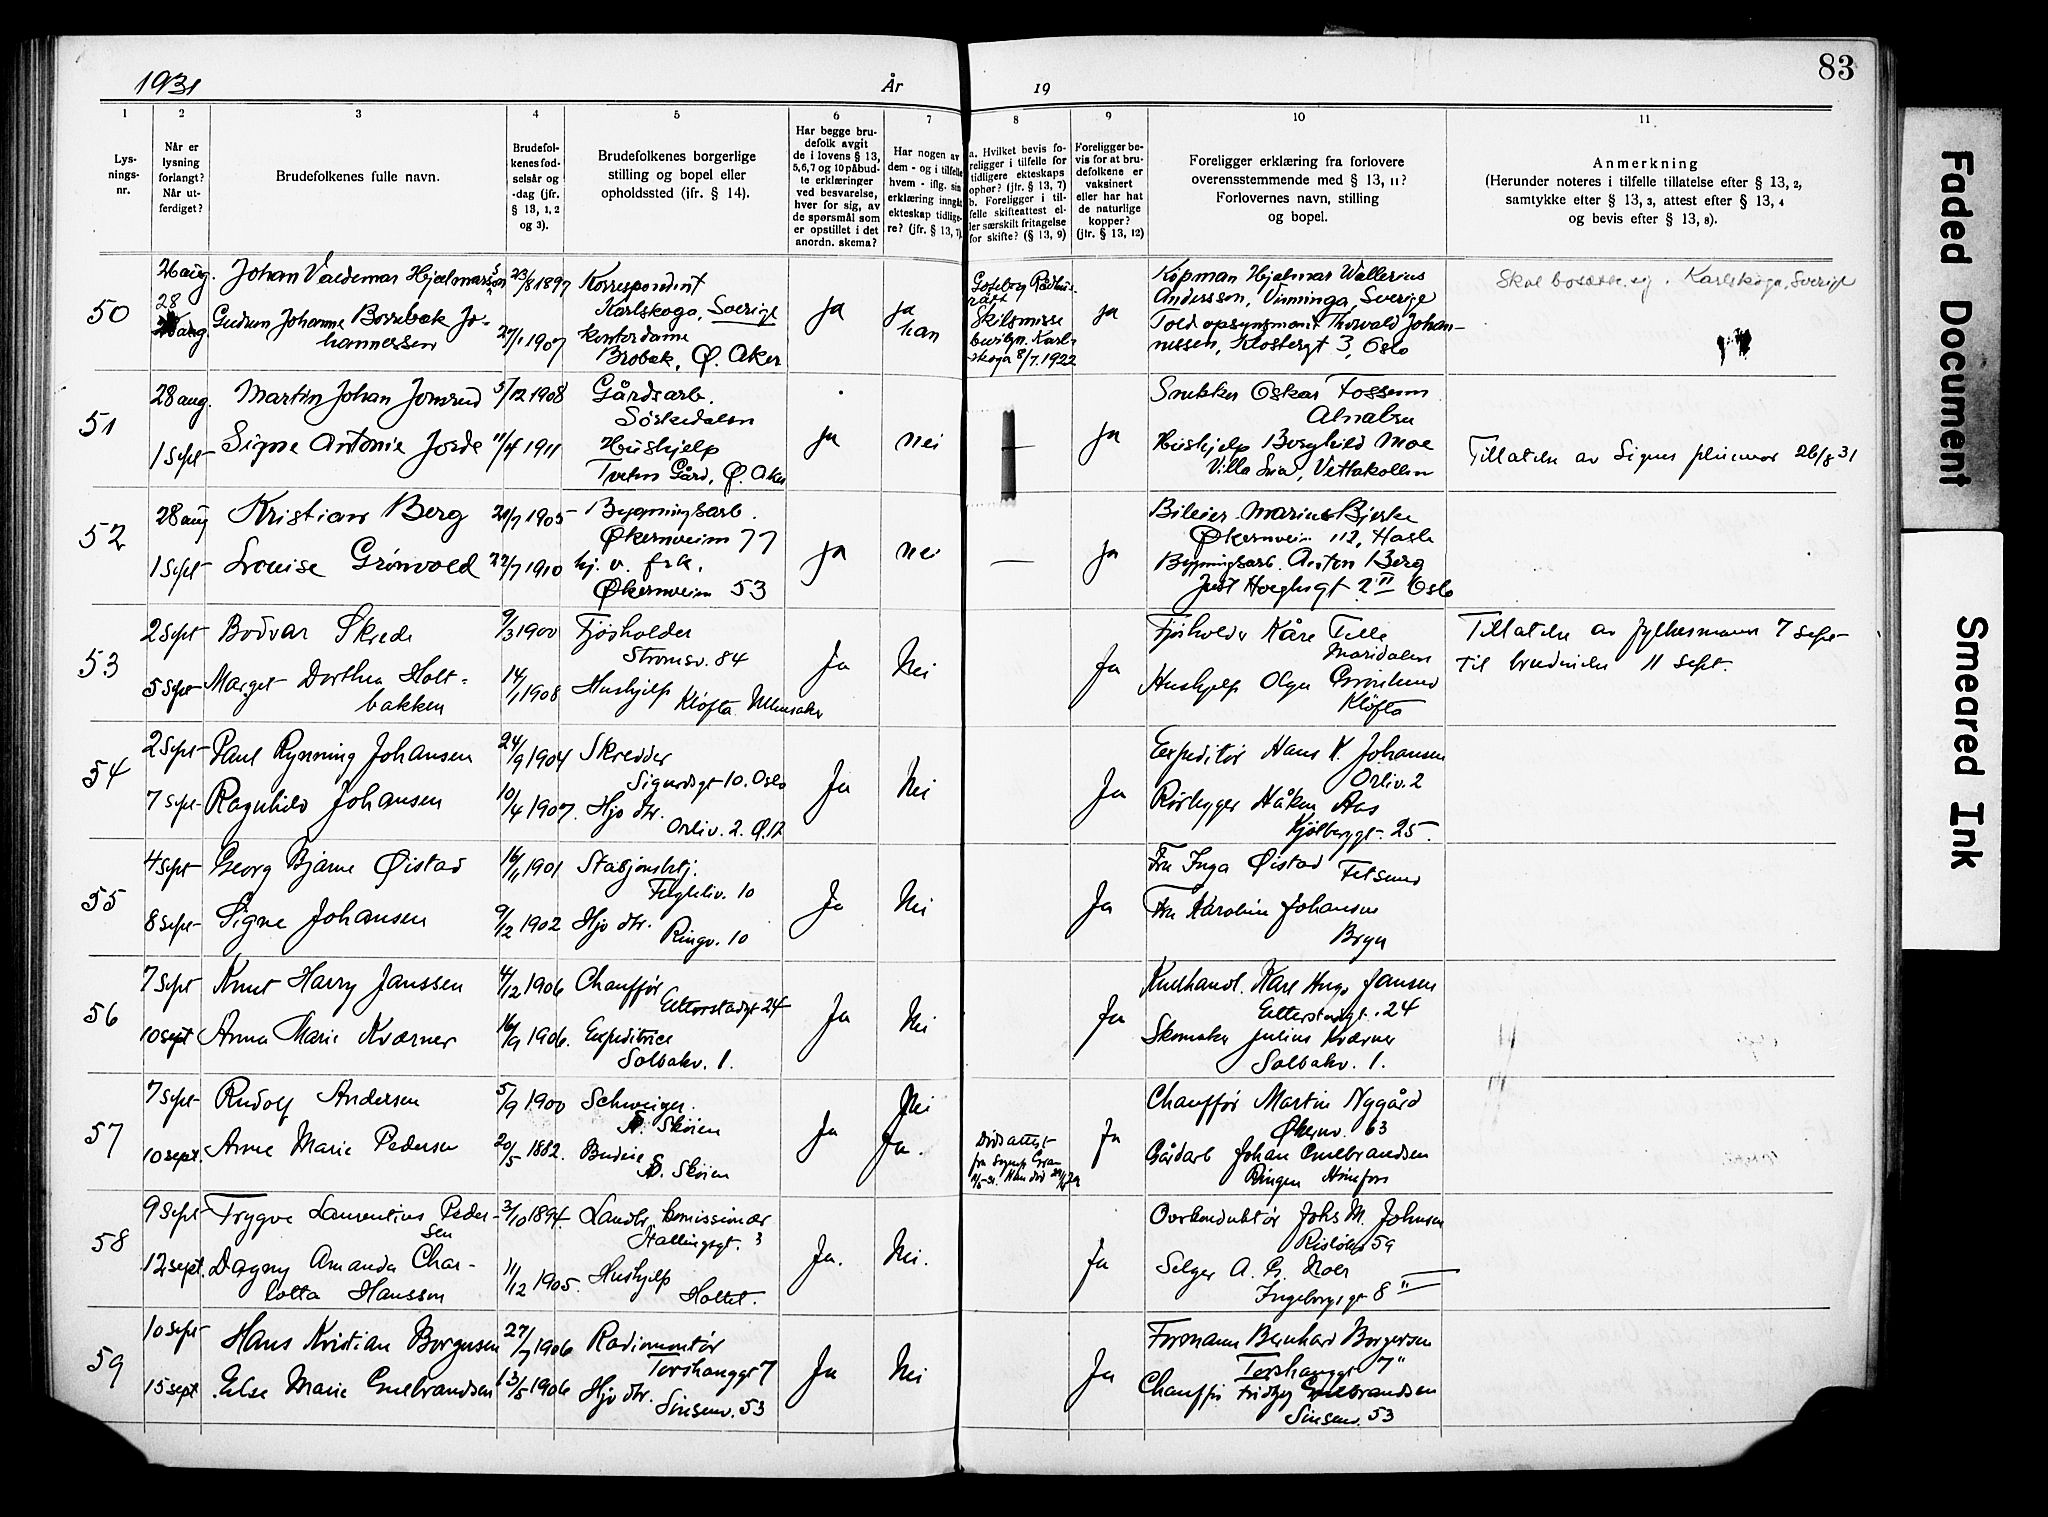 1931 År 19 83
1 2 3 4 5 6 7 8 9 10 11
Lys-
nings-
nr.
Når er
lysning
forlangt?
Når ut-
ferdiget?
Brudefolkenes fulle navn.
Brudefol-
kenes fød-
selsår og
-dag (jfr.
§ 13, 1, 2
og 3).
Brudefolkenes borgerlige
stilling og bopel eller
opholdssted (jfr. § 14).
Har begge bru-
defolk avgit
de i lovens § 13,
5,6,7 og 10 påbud-
te erklæringer
ved besvarelse,
hver for sig, av
de spørsmål som
er opstillet i det
anordn. skema?
Har nogen av
dem - og i tilfelle
hvem - iflg. sin
erklæring inngått
ekteskap tidlige-
re? (jfr. § 13, 7).
a. Hvilket bevis fo-
religger i tilfelle for
tidligere ekteskaps
ophør? (jfr. § 13, 7)
b. Foreligger i til-
felle skifteattest el-
ler særskilt fritagelse
for skifte? (§ 13, 9)
Foreligger be-
vis for at bru-
defolkene er
vaksinert
eller har hat
de naturlige
kopper?
(jfr. § 13, 12)
Foreligger erklæring fra forlovere
overensstemmende med § 13, 11?
Forlovernes navn, stilling
og bopel.
Anmerkning
(Herunder noteres i tilfelle tillatelse efter § 13, 2,
samtykke efter § 13, 3, attest efter § 13, 4
og bevis efter § 13, 8).
50
26 aug.
28 aug
Johan Valdemar Hjalmarsson
Gudrun Johanne Borrebæk Jo-
hannessen
23/8 1897
27/1 1907
Korrespondent
Karlskoga, Sverige
Kontordame
Brobæk, Ø. Aker
ja
ja
han
Göteborg Rådhus-
rätt
Skilsmisse
bevilgn. Karl-
skoga 8/7.1922
ja
Köpman Hjalmar Wallerius
Andersson, Vinninga, Sverige
Toldopsynsmant Thorvald Johan-
nessen, Klostergt 3, Oslo
Skal bosætte sig i Karlskoga, Sverige
51
28 aug.
1 Sept
Martin Johan Jonsrud
Signe Antonie Jorde
5/12 1908
11/4 1911
Gårdsarb.
Sørkedalen
Hushjelp
Tveten Gård, Ø. Aker
ja
nei
—
ja
Snekker Oskar Fossum
Alnabru
Hushjelp Borghild Moe
Villa Sna, Vettakollen
Tillatelse av Signes pleiemor 26/8 31
52
28 aug
1 Sept
Kristian Berg
Lovise Grønvold
21/7 1905
22/7 1910
Bygningsarb.
Økernveien 77
hj. v. frk.
Økernveien 53
ja
nei
—
ja
Bileier Marius Bjerke
Økernveien 112, Hasle
Bygningsarb. Anton Berg
Just Hoeghsgt 2 II Oslo
53
2 Sept
5 Sept
Bodvar Skrede
Marget Dorthea Holt-
bakken
9/3 1900
14/1 1908
Fjøsholder
Strømsv. 84
Hushjelp
Kløfta Ullensaker
Ja
Nei
Ja
Fjøsholder Kåre Telle
Maridalen
Hushjelp Olga Grønlund
Kløfta
Tillatelse av fylkesmann 7 sept
til brudeniden 11 sept.
54
2 Sept
7 Sept
Paul Rynning Johansen
Ragnhild Johansen
24/9 1904
10/4 1907.
Skredder
Sigurdsgt 10. Oslo
Hjv dtr.
Orliv. 2. Ø.A
Ja
Nei
Ja
Expeditør Hans K. Johansen
Orliv. 2
Rørlegger Håkon Aas
Kjølberggt. 25.
55
4 Sept
8 Sept
Georg Bjarne Øistad
Signe Johansen
16/11 1901
9/12 1902
Stasjonsbtj.
Fugleliv. 10
Hjv dtr.
Ringv. 10
Ja
Nei
Ja
Fru Inga Øistad Fetsund
Fru Karoline Johansen
Bryn
56
7 Sept
10 sept
Knut Harry Janssen
Anna Marie Kværner
4/12 1906
16/9 1906.
Chauffør
Etterstadgt 24
Expeditrice
Solbakv. 1.
Ja
Nei
Ja
Kulhandl. Karl Hugo Jansen
Etterstadgt. 24
Skomaker Julius Kværner
Solbakv. 1.
57
7 Sept
10 sept.
Rudolf Andersen
Anne Marie Pedersen
5/9 1900
20/5 1882.
Schweizer
N. Skøien
Budeie
N. Skøien
Ja
Nei
Ja.
Dødsattest
Ja
Chauffør Martin Nygård
Økernv. 63
Gårdarb Johan Engebrandsen
Ringen Hønefoss
58
9 Sept
12 sept.
Trygve Laurentius Peder-
sen
Dagny Amanda Char-
lotta Hansson
3/10 1894.
11/12 1905.
Landbr. komissionær
Hallingsgt. 3
Hushjelp
Holtet.
Ja.
Nei.
Ja
Overkonduktør Johs M. Johnsen
Risløkv 59
Selger A. G. Noer
Ingeborgsgt 8 II
59
10 Sept
15 sept
Hans Kristian Borgersen
Else Marie Engebrandsen
27/7 1906
13/5 1906
Radiomontør
Torshauggt 7
Hjv dtr.
Sinsenv. 53
Ja
Nei
Ja
Formann Bernhard Borgersen
Torshauggt 7
Chauffør Fridtjof Engebrandsen
Sinsenv. 53
Faded Document
Smeared Ink